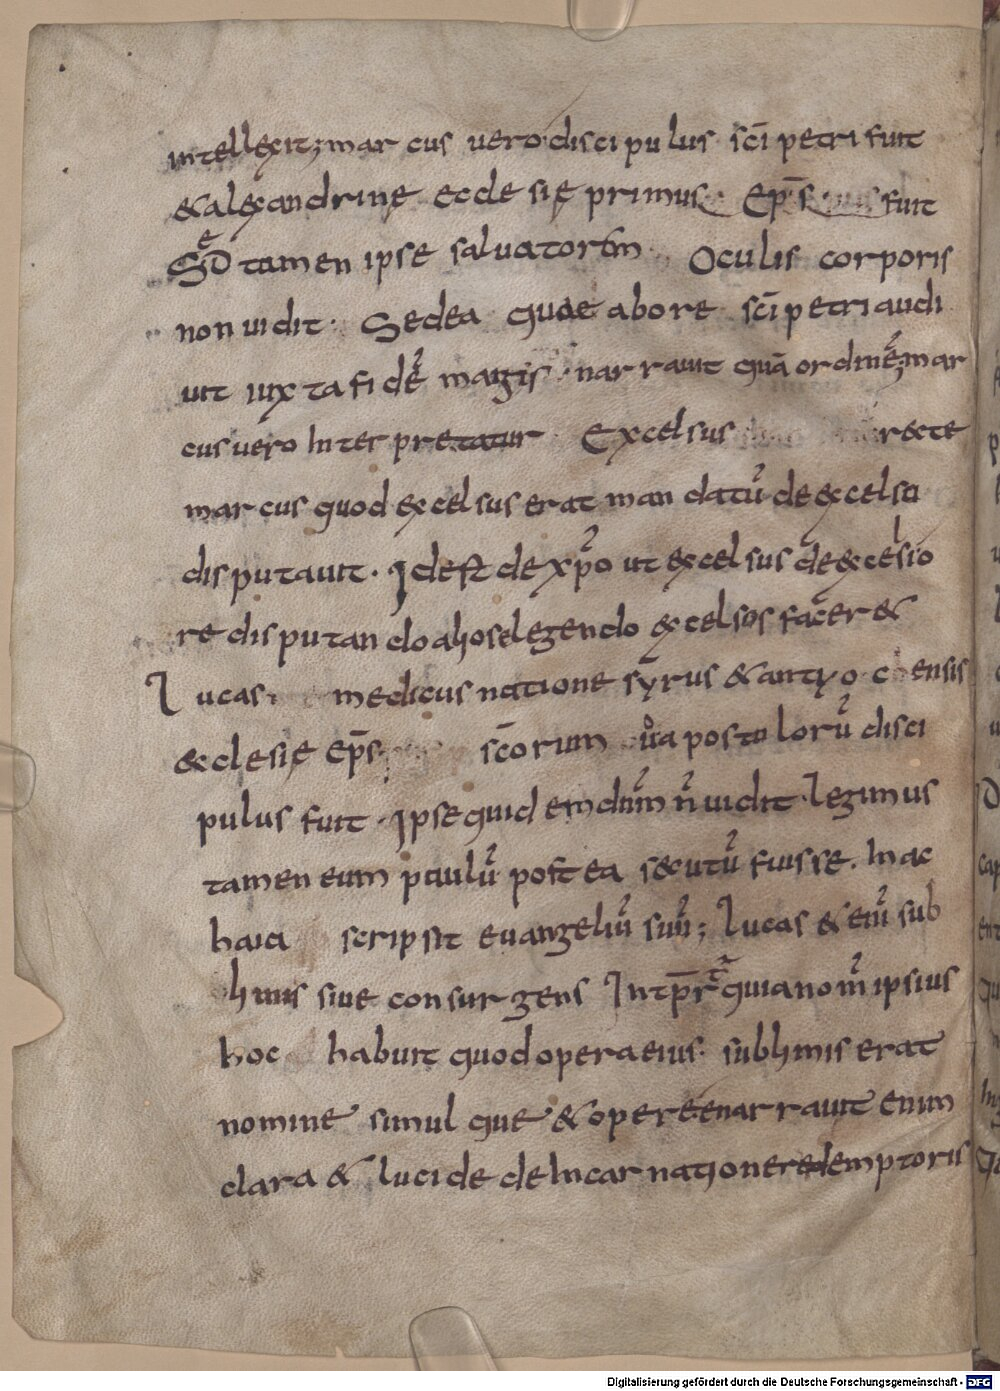 intellexit; mar cus vero disci pu lus sc̄i petri fuit
&alexandrinę eccle się primus Ep̄s fuit
Sed tamen ipse salvatorem Oculis corporis
non vidit · Sedea quae abore sc̄i petri audi
vit iux ta fi dē magis · nar ravit quā ordinē; mar
cus vero Inter pretatur Excelsus recte
mar cus quod excel sus erat man datū de excelso
dis putavit · Idest de xp̄o ut excel sus de excelsio
re dis putan do alios legendo excelsos facer&
Lucas medicus natione syrus &antyo c ensis
ecclesię Ep̄s sc̄orum v̊ apostolorū disci
pulus fuit · Ipse quid em dn̄m n̄ vidit · legimus
tamen eum paulū postea secutū fuisse . In ac
haia scripsit evangeliū suū; Lucas & enī sub
limis sive consurgens Intp̄r& quia nom̄ ipsius
hoc habuit quod opera eius · sublimis erat
nomine simul que & opere enar ravit enim
clara & lucide de Incar natione redemptoris
Digitalisierung gefördert durch die Deutsche Forschungsgemeinschaft - DFG